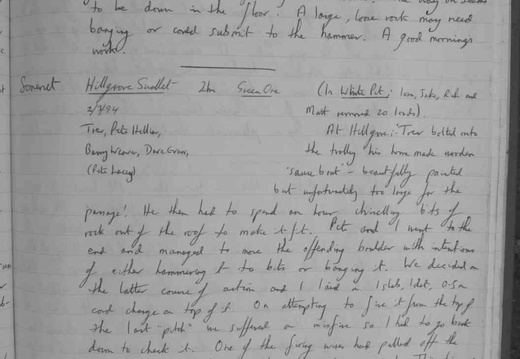 to be down in the floor. A large, loose rock may need
banging or could submit to the hammer. A good mornings
work.
Somerset Hillgrove Swallet 2hr Green Ore (In White Pit; Ivan, Jake, Rich and
2/3/94 Matt removed 20 loads).
Trev, Pete Hellier, At Hillgrove; Trev bolted onto
Barry Weaver, Dave the trolley his home made wooden
(Pete Lacey) 'sauce boat' - beautifully painted
but unfortunately too large for the
passage! He then had to spend an hour chiselling bits of
rock out of the roof to make it fit. Pete and I went to the
end and managed to move the offending boulder with intentions
of either hammering it to bits or banging it. We decided on
the latter course of action and I laid a 1 slab, 1 det, 0.5m
cord charge on top of it. On attempting to fire it from the top of
the last "pitch" we suffered a misfire so I had to go back
down to check it. One of the firing wires had pulled off the